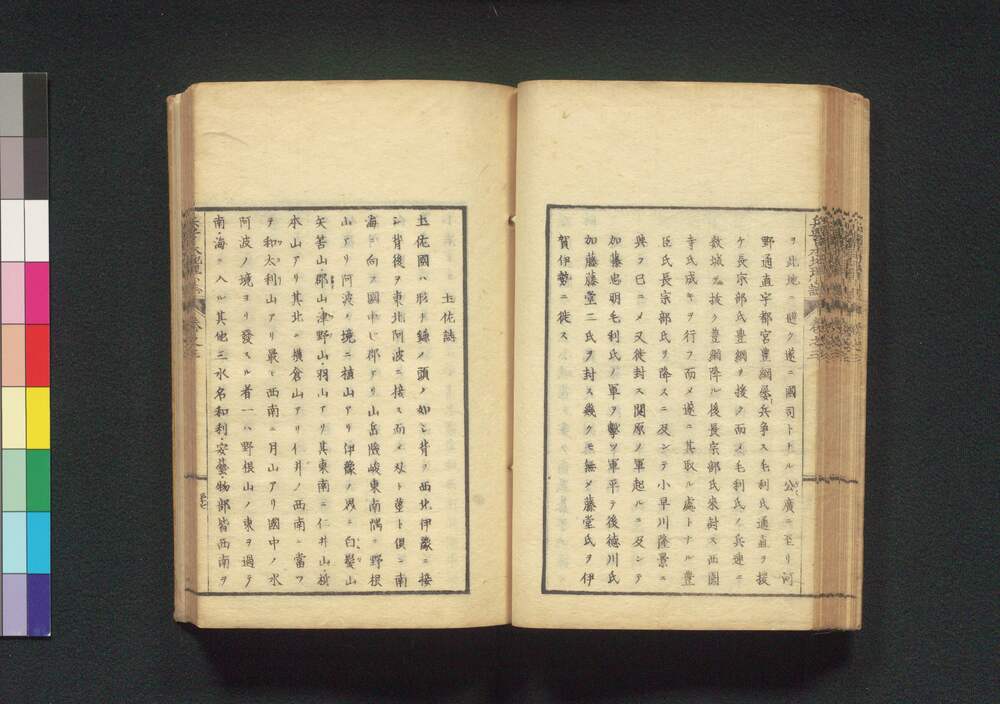 ヲ此地ニ避ク遂ニ國司トナル公廣ニ至リ河
野通直宇都宮豊綱屢兵争ス毛利氏通直ヲ援
ケ長宗部氏豊綱ヲ援ク而メ毛利氏ノ兵連ニ
数城ヲ抜ク豊綱降ル後長宗部氏來討ス西園
寺氏成キヲ行フ而メ遂ニ其取ル處トナル豊
臣氏長宗部氏ヲ降スニ及ンテ小早川隆景ニ
與フ已ニメ又後封ス関原ノ軍起ルニ及ンテ
加藤忠明毛利氏ノ軍ヲ擊ツ軍平テ後徳川氏
加藤藤堂二氏ヲ封ス幾クモ無メ藤堂氏ヲ伊
賀伊勢ニ徙ス
土佐誌
土佐國ハ形チ鎌ノ頭ノ如シ背ヲ西北伊豫ニ接
シ背後ヲ東北阿波ニ接ス而メ刄ト莖ト倶ニ南
海ニ向ス國中七郡アリ山岳險峻東南隅ニ野根
山アリ阿波ノ境ニ植山アリ伊豫ノ界ニ白髮山
矢筈山郡山津野山羽山アリ其東南ニ仁井山
本山アリ其北ニ横倉山アリ仁井ノ西南ニ當ツ
ヲ和太利山アリ最モ西南ニ月山アリ國中ノ水
阿波ノ境ヨリ發スル者一ハ野根山ノ東ヲ過テ
南海ニ入ル其他三水名和利安藝物部皆西南ヲ